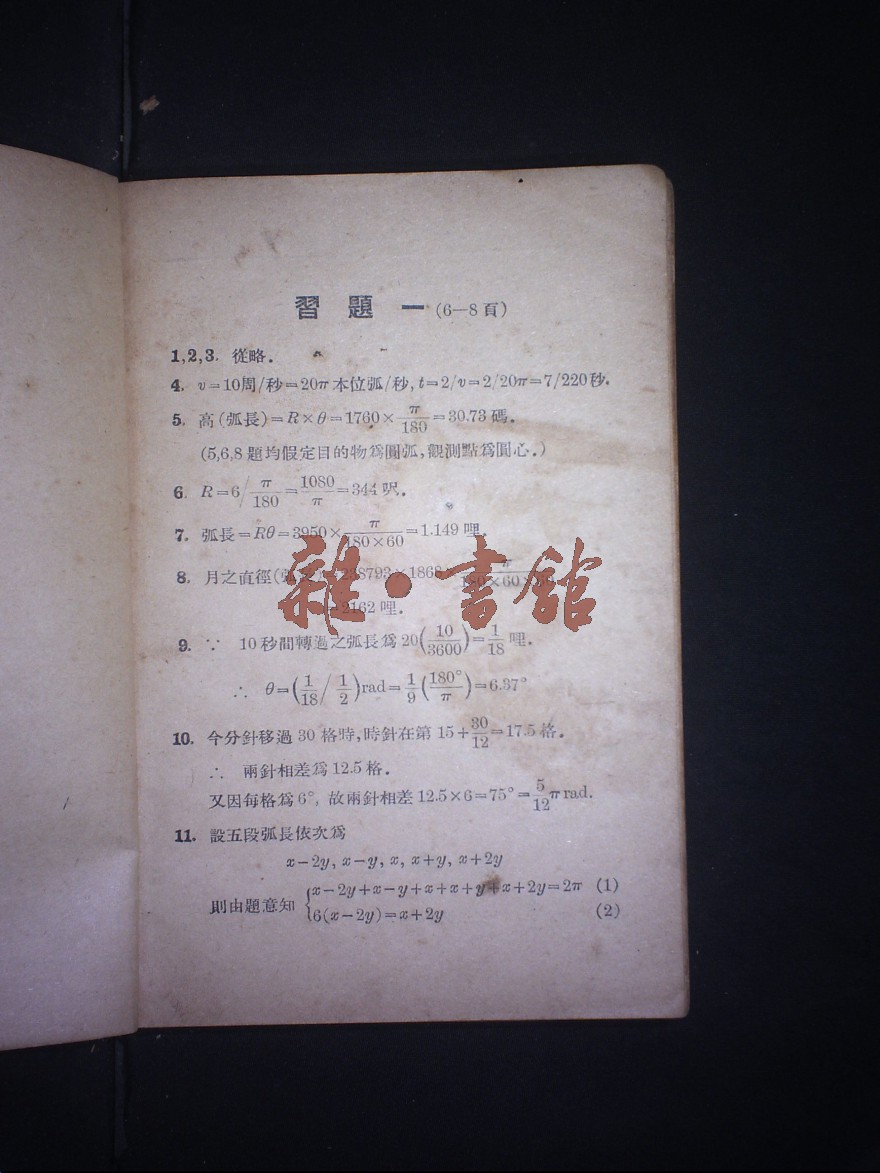 習題一(6—8頁)
1,2,3. 從略.
4. v=10周/秒=20π本位弧/秒, t=2/v=2/20π=7/220秒.
5. 高(弧長)=R×θ=1760×π/180=30.73碼.
(5,6,8題均假定目的物爲圓弧,觀測點爲圓心.)
6. R=6/π/180=1080/π=344呎.
7. 弧長=Rθ=3950×π/180×60=1.149哩.
8. 月之直徑(弧長)=238793×1868×π/180×60×60
=2162哩.
9. ∵ 10秒間轉過之弧長爲20(10/3600)=1/18哩.
∴ θ=(1/18/1/2)rad=1/9(180°/π)=6.37°
10. 今分針移過30格時,時針在第15+30/12=17.5格.
∴ 兩針相差爲12.5格.
又因每格爲6°, 故兩針相差12.5×6=75°=5/12π rad.
11. 設五段弧長依次爲
x−2y, x−y, x, x+y, x+2y
則由題意知{x−2y+x−y+x+x+y+x+2y=2π (1)
6(x−2y)=x+2y (2)
雜·書館